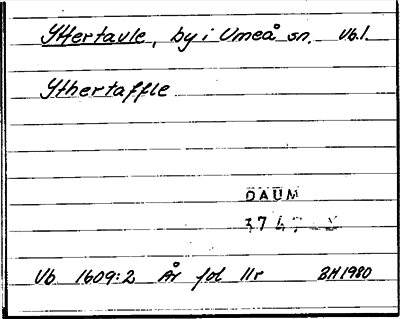 Yttertavle, by i Umeå sn. Vb.l.
Ythertaffle
DAUM
Vb 1609:2 År fol 11r BH 1980